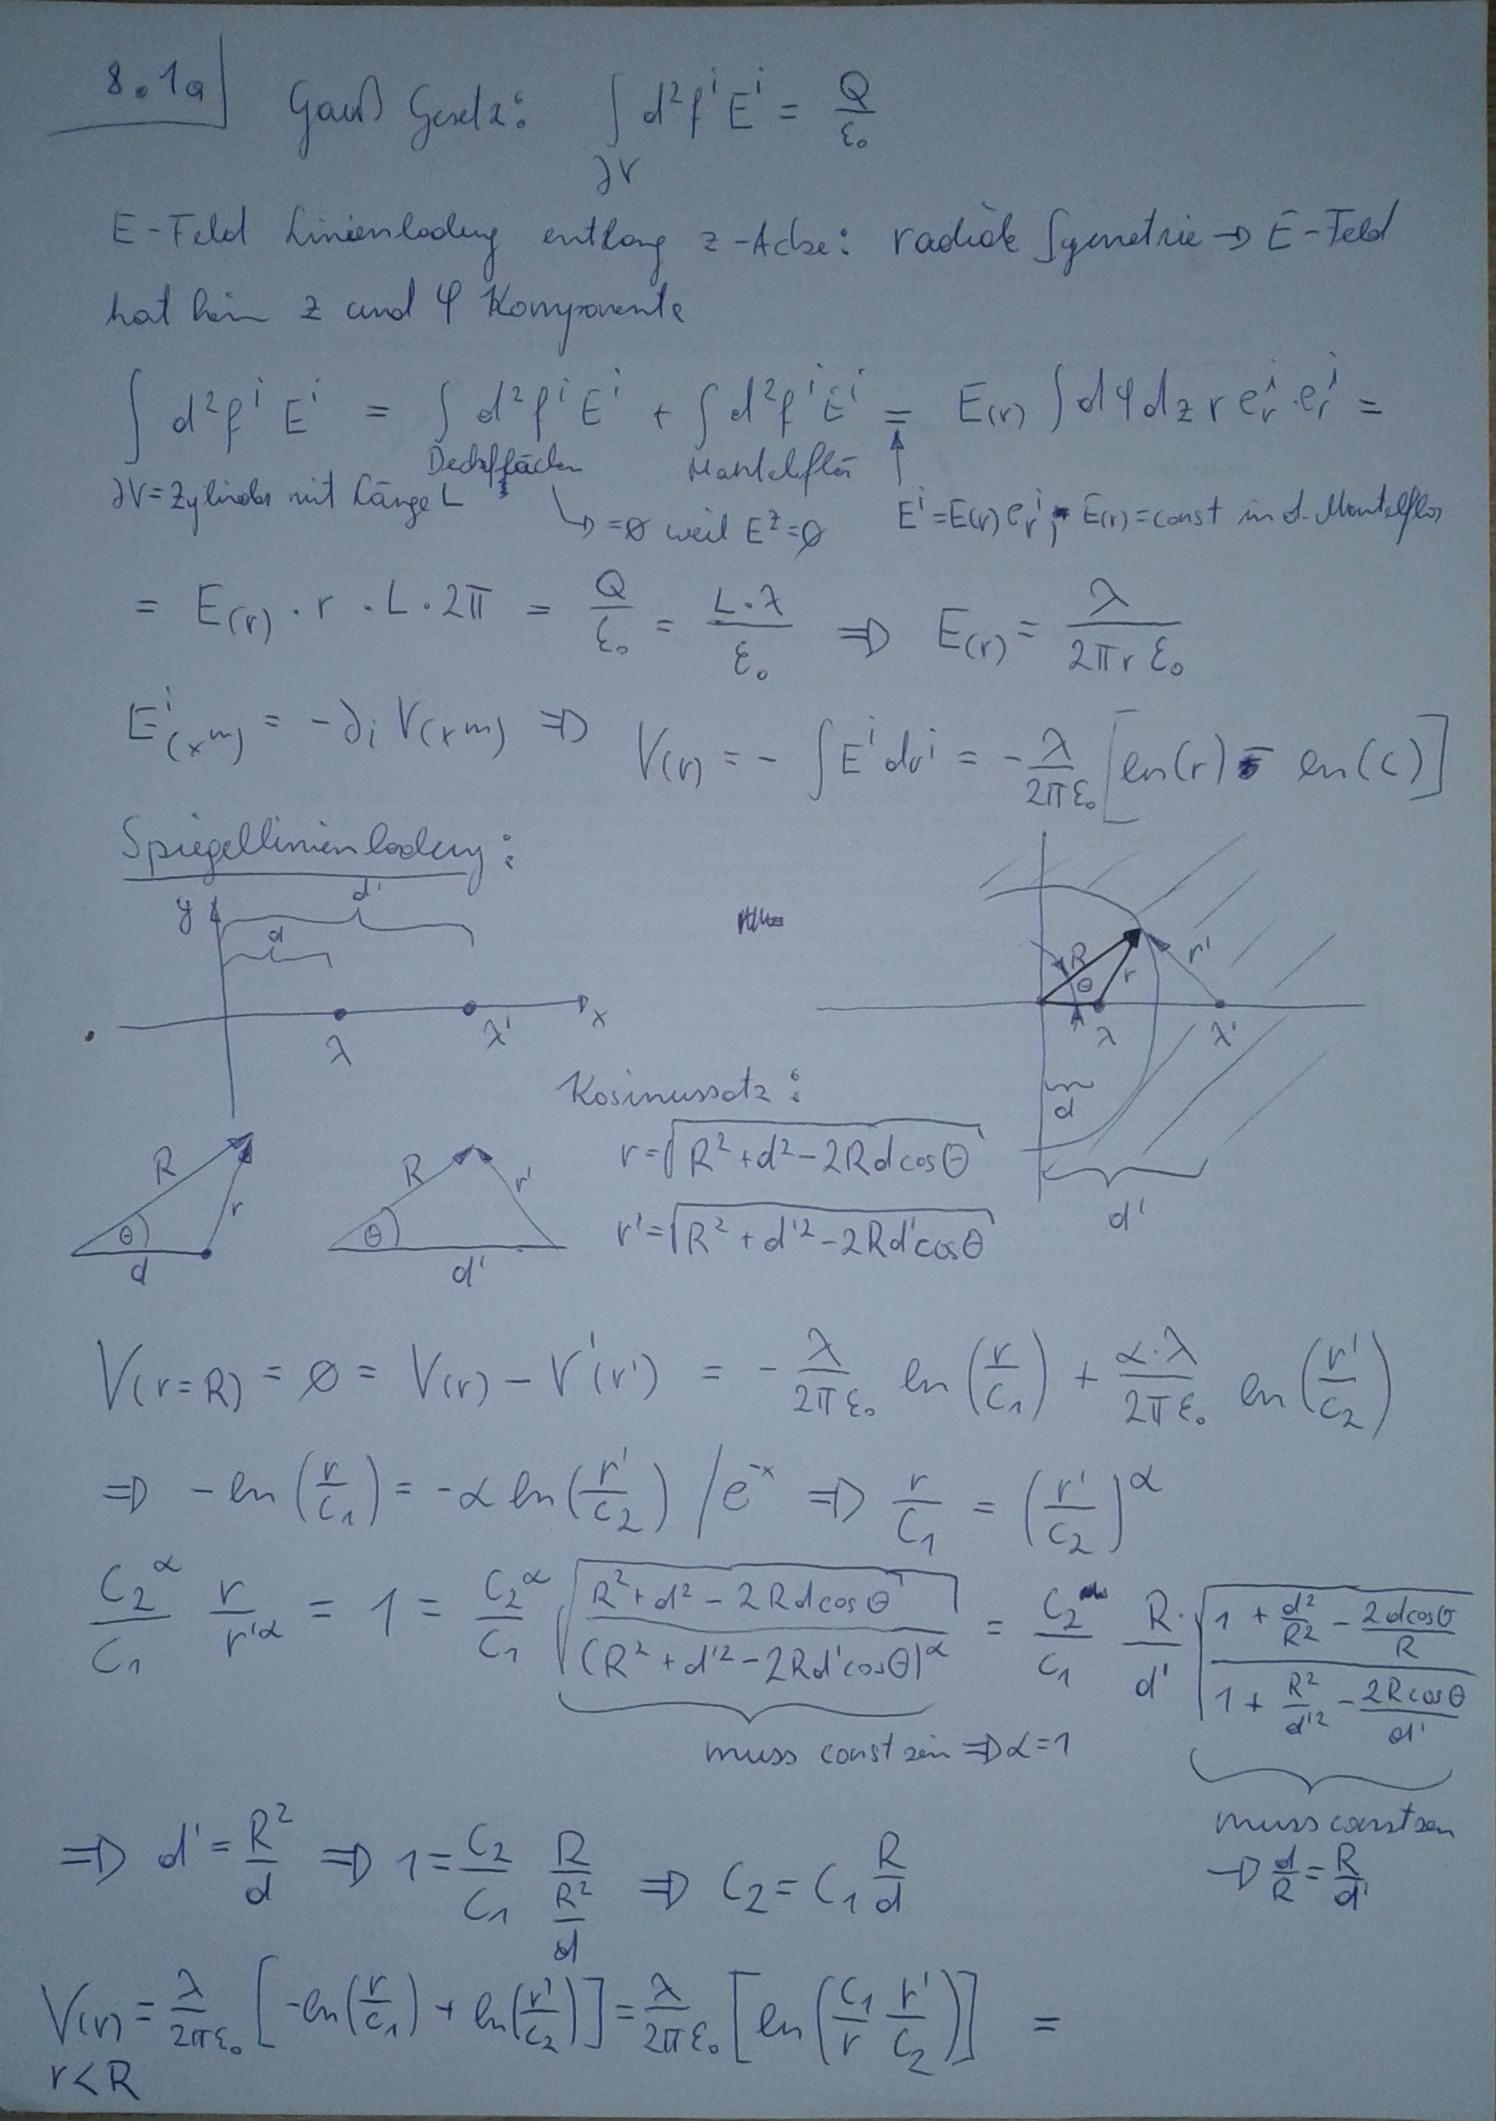 8.1a
Gauß Gesetz: ∫ d²fⁱ Eⁱ = Q/ε₀
∂V
E-Feld Linienladung entlang z-Achse: radiale Symetrie ⇒ E-Feld
hat kein z und φ Komponente
∫ d²fⁱ Eⁱ = ∫ d²fⁱ Eⁱ + ∫ d²fⁱ Eⁱ = E(r) ∫ dφ dz r eᵣⁱ · eᵣⁱ =
Deckflächen Mantelflä
∂V = Zylinder mit Länge L
→ = 0 weil E^z = 0
Eⁱ = E(r) eᵣⁱ, E(r) = const in d. Mantelflä
= E(r) · r · L · 2π = Q/ε₀ = L·λ/ε₀ ⇒ E(r) = λ/(2πr ε₀)
Eⁱ(x^m) = -∂ᵢ V(x^m) ⇒ V(r) = -∫ Eⁱ drⁱ = -λ/(2πε₀) [ln(r) - ln(c)]
Spiegellinienladung:
d'
y
d
λ λ' x
R r' r θ
λ λ'
d
d'
Kosinussatz:
R r θ d
R r' θ d'
r = √(R² + d² - 2Rd cosθ)
r' = √(R² + d'² - 2Rd' cosθ)
V(r=R) = 0 = V(r) - V'(r') = -λ/(2πε₀) ln(r/c₁) + α·λ/(2πε₀) ln(r'/c₂)
⇒ -ln(r/c₁) = -α ln(r'/c₂) / e^-x ⇒ r/c₁ = (r'/c₂)^α
c₂^α/c₁ r/r'^α = 1 = c₂^α/c₁ √((R² + d² - 2Rd cosθ)/(R² + d'² - 2Rd' cosθ)^α) = c₂/c₁ R/d' · √((1 + d²/R² - 2d cosθ/R)/(1 + R²/d'² - 2R cosθ/d'))
muss const sein ⇒ α = 1
muss const sein
→ d/R = R/d'
⇒ d' = R²/d ⇒ 1 = c₂/c₁ R/(R²/d) ⇒ c₂ = c₁ R/d
V(r) = λ/(2πε₀) [-ln(r/c₁) + ln(r'/c₂)] = λ/(2πε₀) [ln(c₁/r r'/c₂)] =
r < R